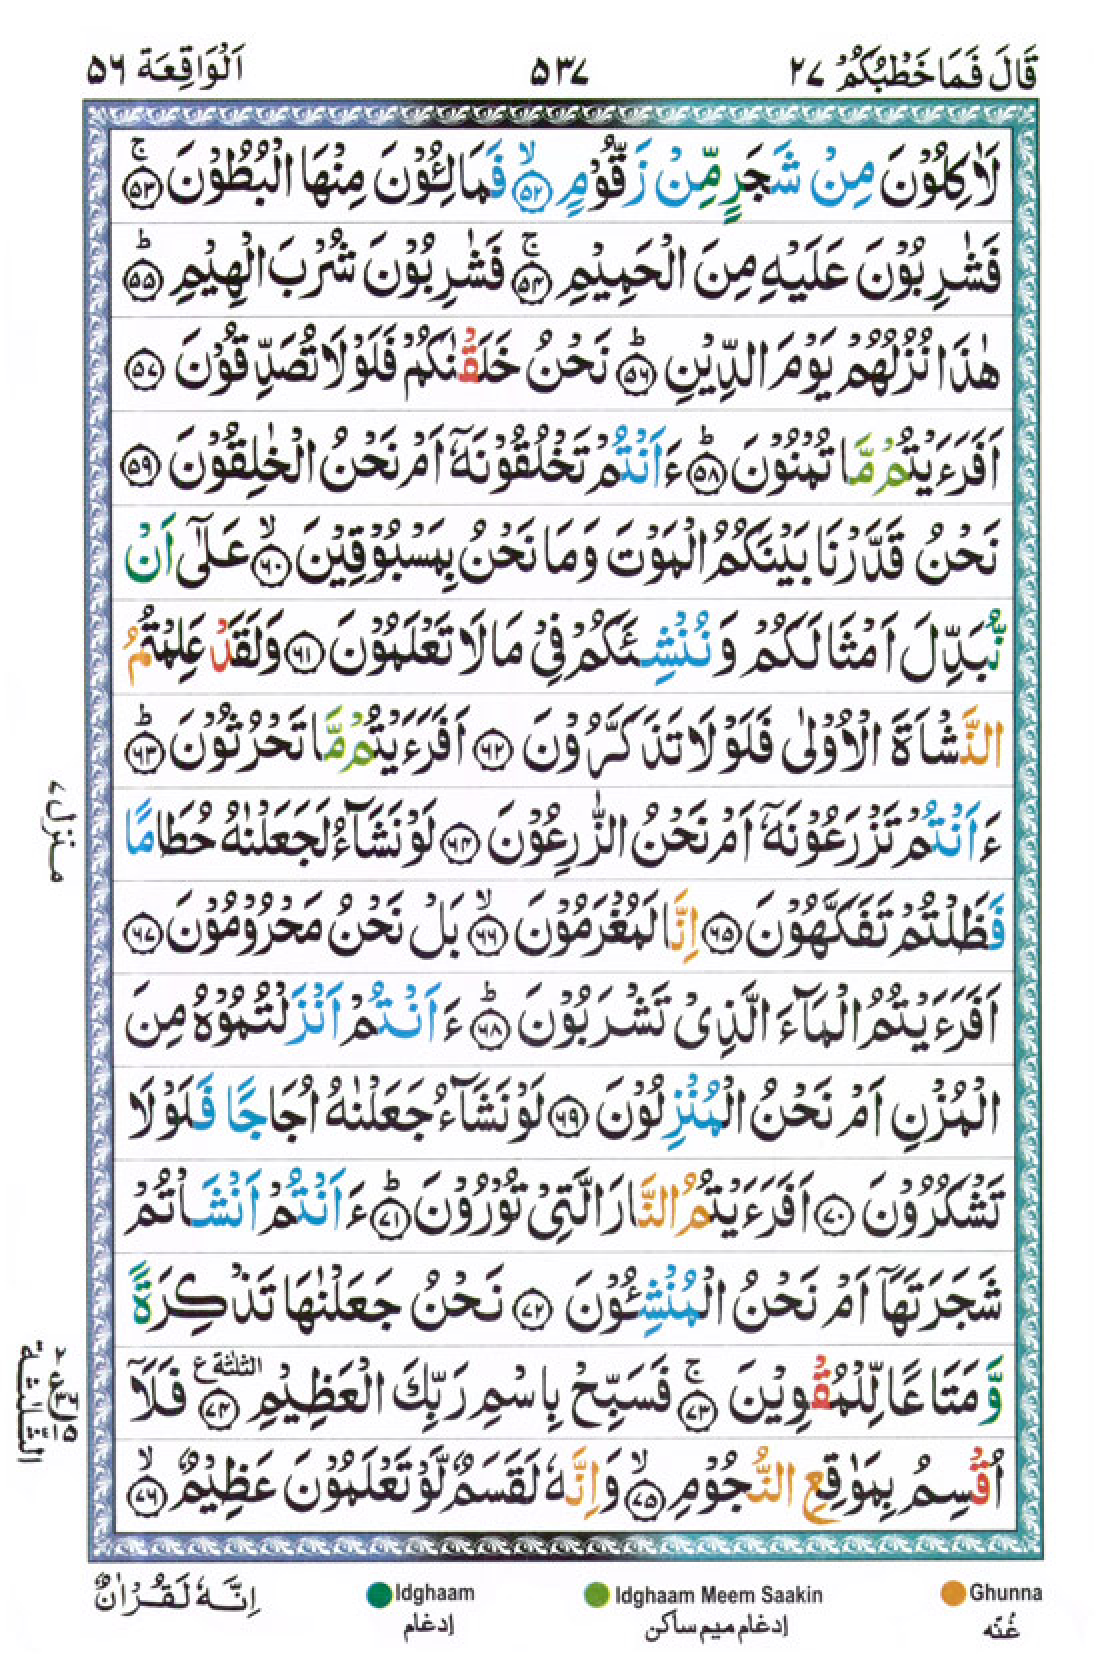 قَالَ فَمَا خَطْبُكُمْ ٢٧ ٥٣٧ اَلْوَاقِعَة ٥٦
لَاٰكِلُوْنَ مِنْ شَجَرٍ مِّنْ زَقُّوْمٍ ۙ‏﴿٥٢﴾ فَمَالِـُٔوْنَ مِنْهَا الْبُطُوْنَ ۚ‏﴿٥٣﴾
فَشٰرِبُوْنَ عَلَيْهِ مِنَ الْحَمِيْمِ ۚ‏﴿٥٤﴾ فَشٰرِبُوْنَ شُرْبَ الْهِيْمِ ؕ‏﴿٥٥﴾
هٰذَا نُزُلُهُمْ يَوْمَ الدِّيْنِ ؕ‏﴿٥٦﴾ نَحْنُ خَلَقْنٰكُمْ فَلَوْلَا تُصَدِّقُوْنَ ﴿٥٧﴾
اَفَرَءَيْتُمْ مَّا تُمْنُوْنَ ؕ‏﴿٥٨﴾ ءَاَنْتُمْ تَخْلُقُوْنَهٗۤ اَمْ نَحْنُ الْخٰلِقُوْنَ ﴿٥٩﴾
نَحْنُ قَدَّرْنَا بَيْنَكُمُ الْمَوْتَ وَمَا نَحْنُ بِمَسْبُوْقِيْنَ ۙ‏﴿٦٠﴾ عَلٰۤى اَنْ
نُّبَدِّلَ اَمْثَالَكُمْ وَنُنْشِئَكُمْ فِيْ مَا لَا تَعْلَمُوْنَ ﴿٦١﴾ وَلَقَدْ عَلِمْتُمُ
النَّشْاَةَ الْاُوْلٰى فَلَوْلَا تَذَكَّرُوْنَ ﴿٦٢﴾ اَفَرَءَيْتُمْ مَّا تَحْرُثُوْنَ ؕ‏﴿٦٣﴾
ءَاَنْتُمْ تَزْرَعُوْنَهٗۤ اَمْ نَحْنُ الزّٰرِعُوْنَ ﴿٦٤﴾ لَوْ نَشَآءُ لَجَعَلْنٰهُ حُطَامًا
فَظَلْتُمْ تَفَكَّهُوْنَ ﴿٦٥﴾ اِنَّا لَمُغْرَمُوْنَ ۙ‏﴿٦٦﴾ بَلْ نَحْنُ مَحْرُوْمُوْنَ ﴿٦٧﴾
اَفَرَءَيْتُمُ الْمَآءَ الَّذِيْ تَشْرَبُوْنَ ؕ‏﴿٦٨﴾ ءَاَنْتُمْ اَنْزَلْتُمُوْهُ مِنَ
الْمُزْنِ اَمْ نَحْنُ الْمُنْزِلُوْنَ ﴿٦٩﴾ لَوْ نَشَآءُ جَعَلْنٰهُ اُجَاجًا فَلَوْلَا
تَشْكُرُوْنَ ﴿٧٠﴾ اَفَرَءَيْتُمُ النَّارَ الَّتِيْ تُوْرُوْنَ ؕ‏﴿٧١﴾ ءَاَنْتُمْ اَنْشَاْتُمْ
شَجَرَتَهَاۤ اَمْ نَحْنُ الْمُنْشِـُٔوْنَ ﴿٧٢﴾ نَحْنُ جَعَلْنٰهَا تَذْكِرَةً
وَّمَتَاعًا لِّلْمُقْوِيْنَ ۚ‏﴿٧٣﴾ فَسَبِّحْ بِاسْمِ رَبِّكَ الْعَظِيْمِ الثلثة ع ﴿٧٤﴾ فَلَاۤ
اُقْسِمُ بِمَوٰقِعِ النُّجُوْمِ ۙ‏﴿٧٥﴾ وَاِنَّهٗ لَقَسَمٌ لَّوْ تَعْلَمُوْنَ عَظِيْمٌ ۙ‏﴿٧٦﴾
منزل ٧
اِنَّهٗ لَقُرْاٰنٌ
Idghaam
إدغام
Idghaam Meem Saakin
إدغام ميم ساكن
Ghunna
غُنّه